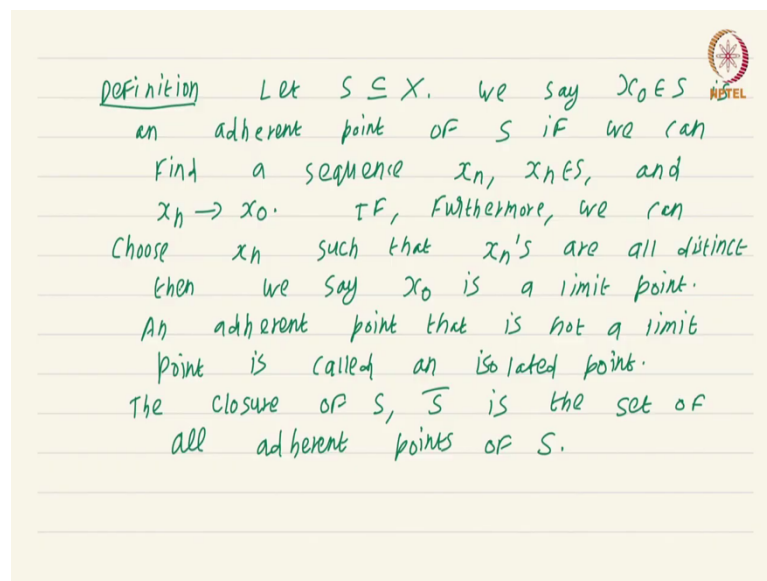 Definition Let S ⊆ X. We say x₀ ∈ S is
an adherent point of S if we can
find a sequence xₙ, xₙ ∈ S, and
xₙ → x₀. If, furthermore, we can
choose xₙ such that xₙ's are all distinct
then we say x₀ is a limit point.
An adherent point that is not a limit
point is called an isolated point.
The closure of S, S̅ is the set of
all adherent points of S.
NPTEL